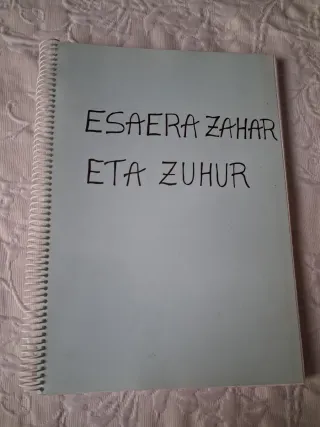 ESAERA ZAHAR
ETA ZUHUR